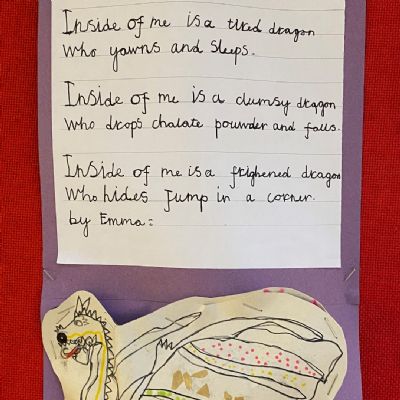 Inside of me is a tired dragon
who yawns and sleeps.
Inside of me is a clumsy dragon
who drops chalate pounder and falls.
Inside of me is a frighened dragon
who hides Jump in a corner.
by Emma: